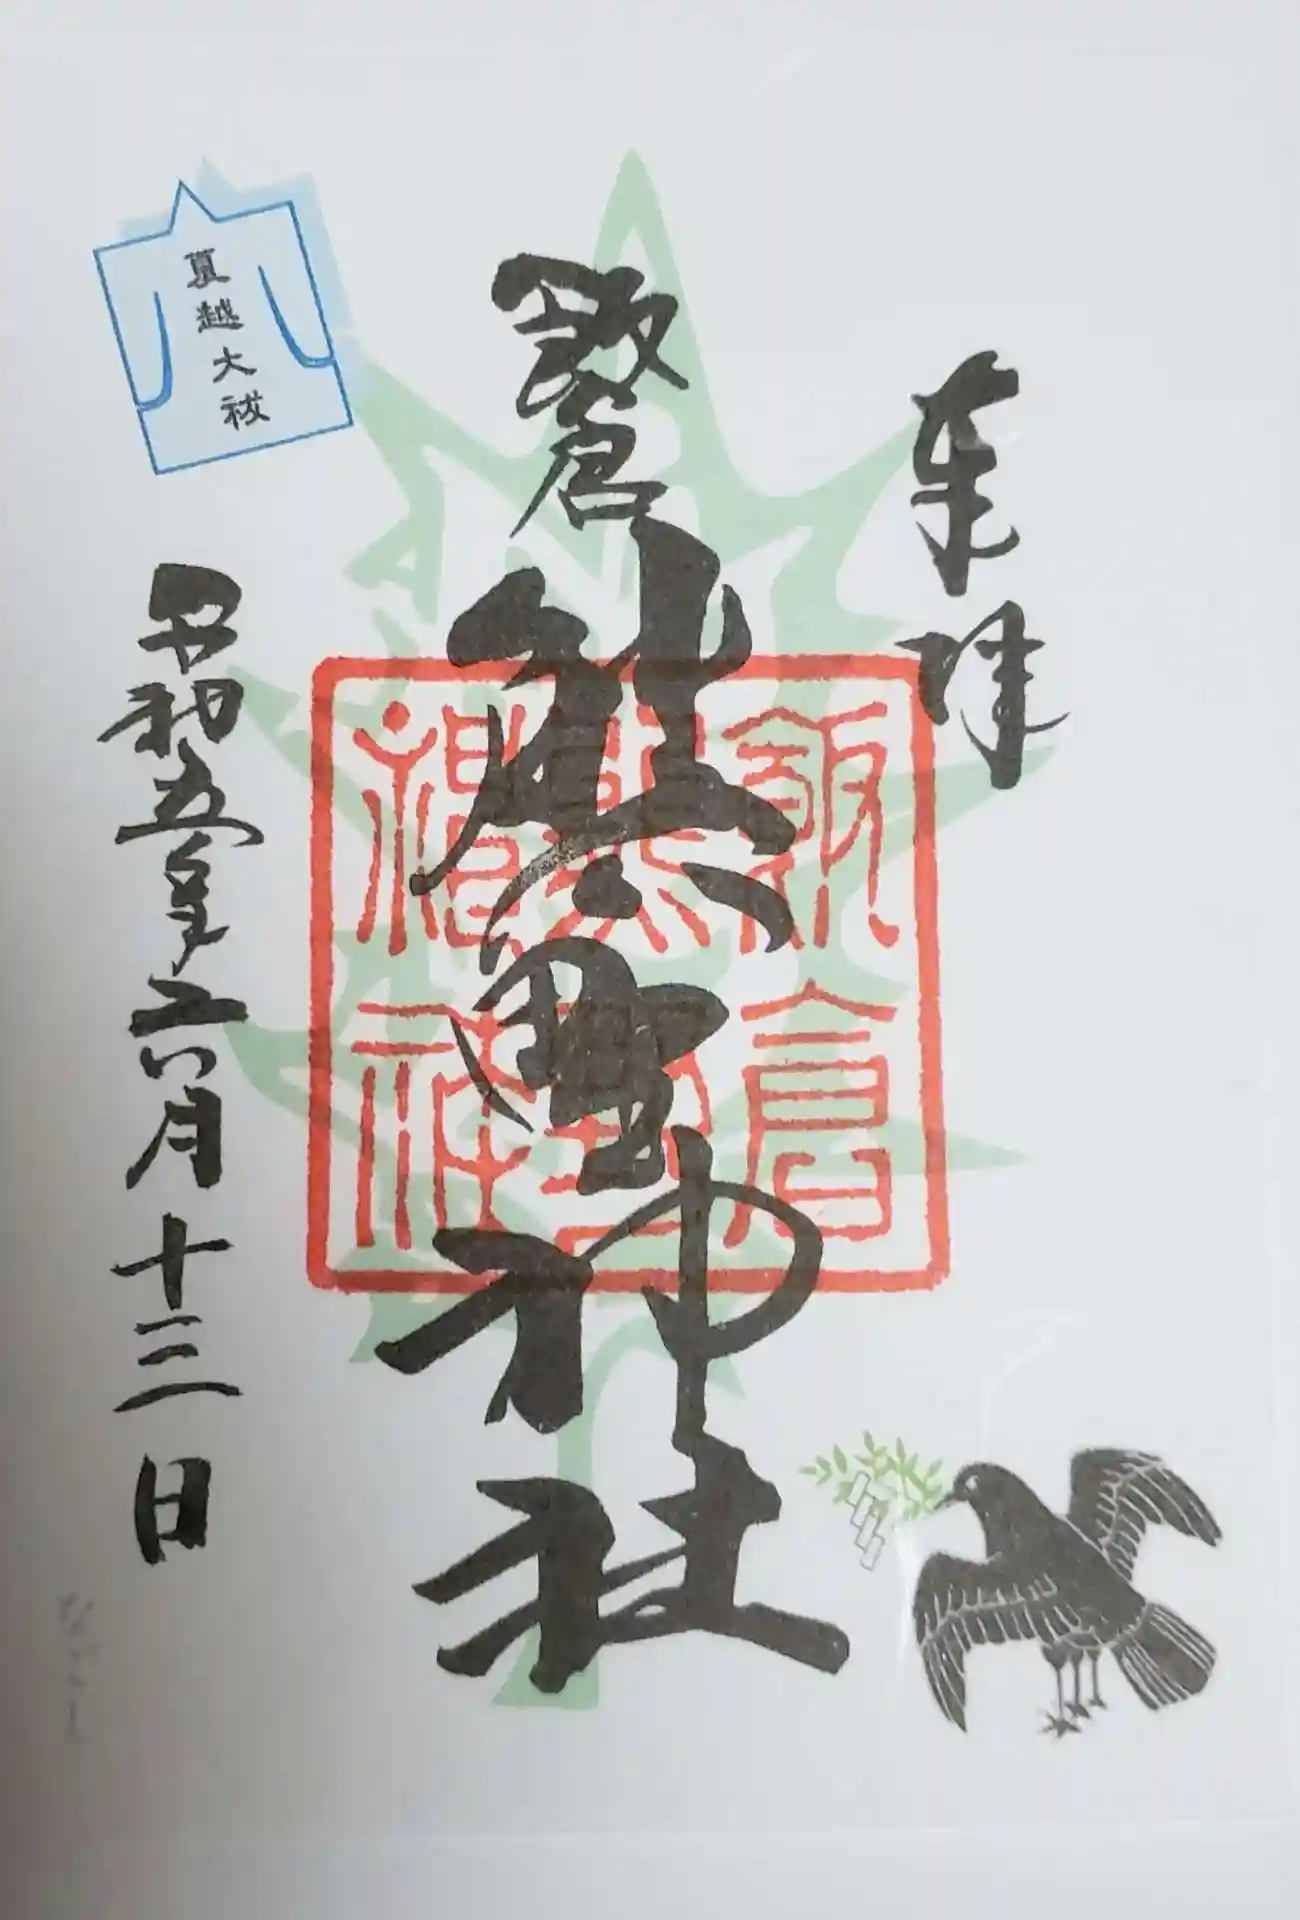 奉拝
飯倉
熊野神社
飯倉
熊野
神社
夏越大祓
令和五年六月十三日
なごし